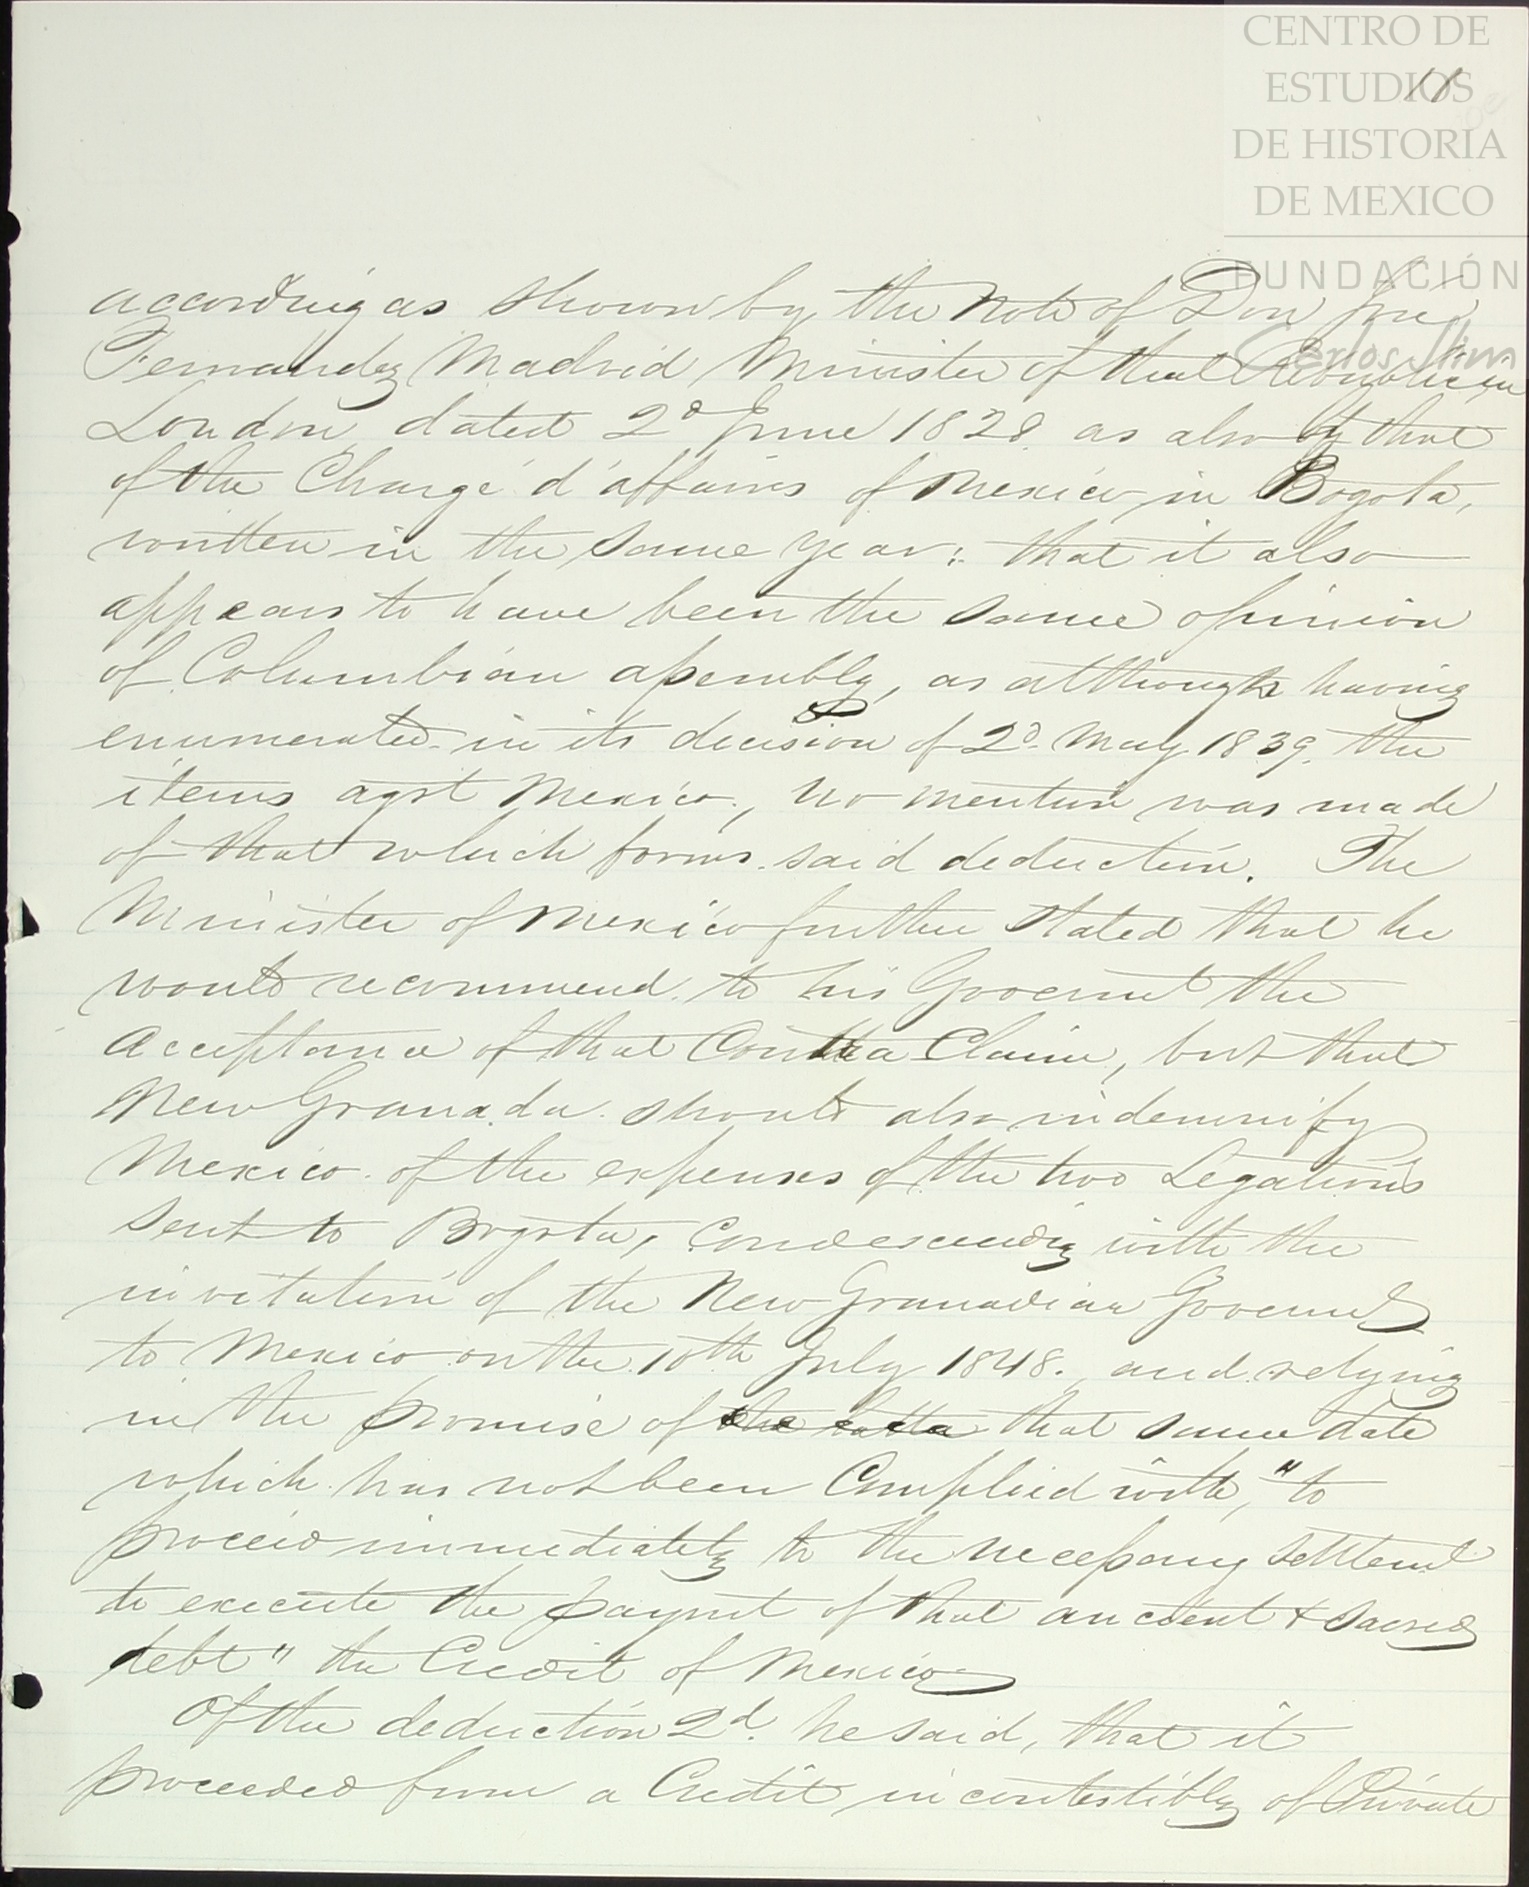 CENTRO DE
ESTUDIOS
DE HISTORIA
DE MEXICO
FUNDACIÓN
Carlos Slim
11
according as shown by the Note of Don José
Fernandez Madrid Minister of that Republic in
London dated 2d June 1828 as also by that
of the Chargé d'affairs of Mexico in Bogota,
written in the same year: that it also
appears to have been the same opinion
of Columbian assembly, as although having
enumerated in its decision of 2d May 1839. the
items agst Mexico, no mention was made
of that which forms said deduction. The
Minister of Mexico further stated that he
would recommend to his Governmt the
acceptance of that Contra Claim, but that
New Granada should also indemnify
Mexico of the expenses of the two Legations
sent to Bogota, Condescending with the
invitation of the New Granadian Governmt
to Mexico on the 10th July 1848. and relying
in the promise of the that same date
which has not been Complied with, "to
proceed immediately to the necessary settlemt
to execute the paymt of that ancient & sacred
debt" the Credit of Mexico
Of the deduction 2d. he said, that it
proceeded from a Credit incontestibly of Private